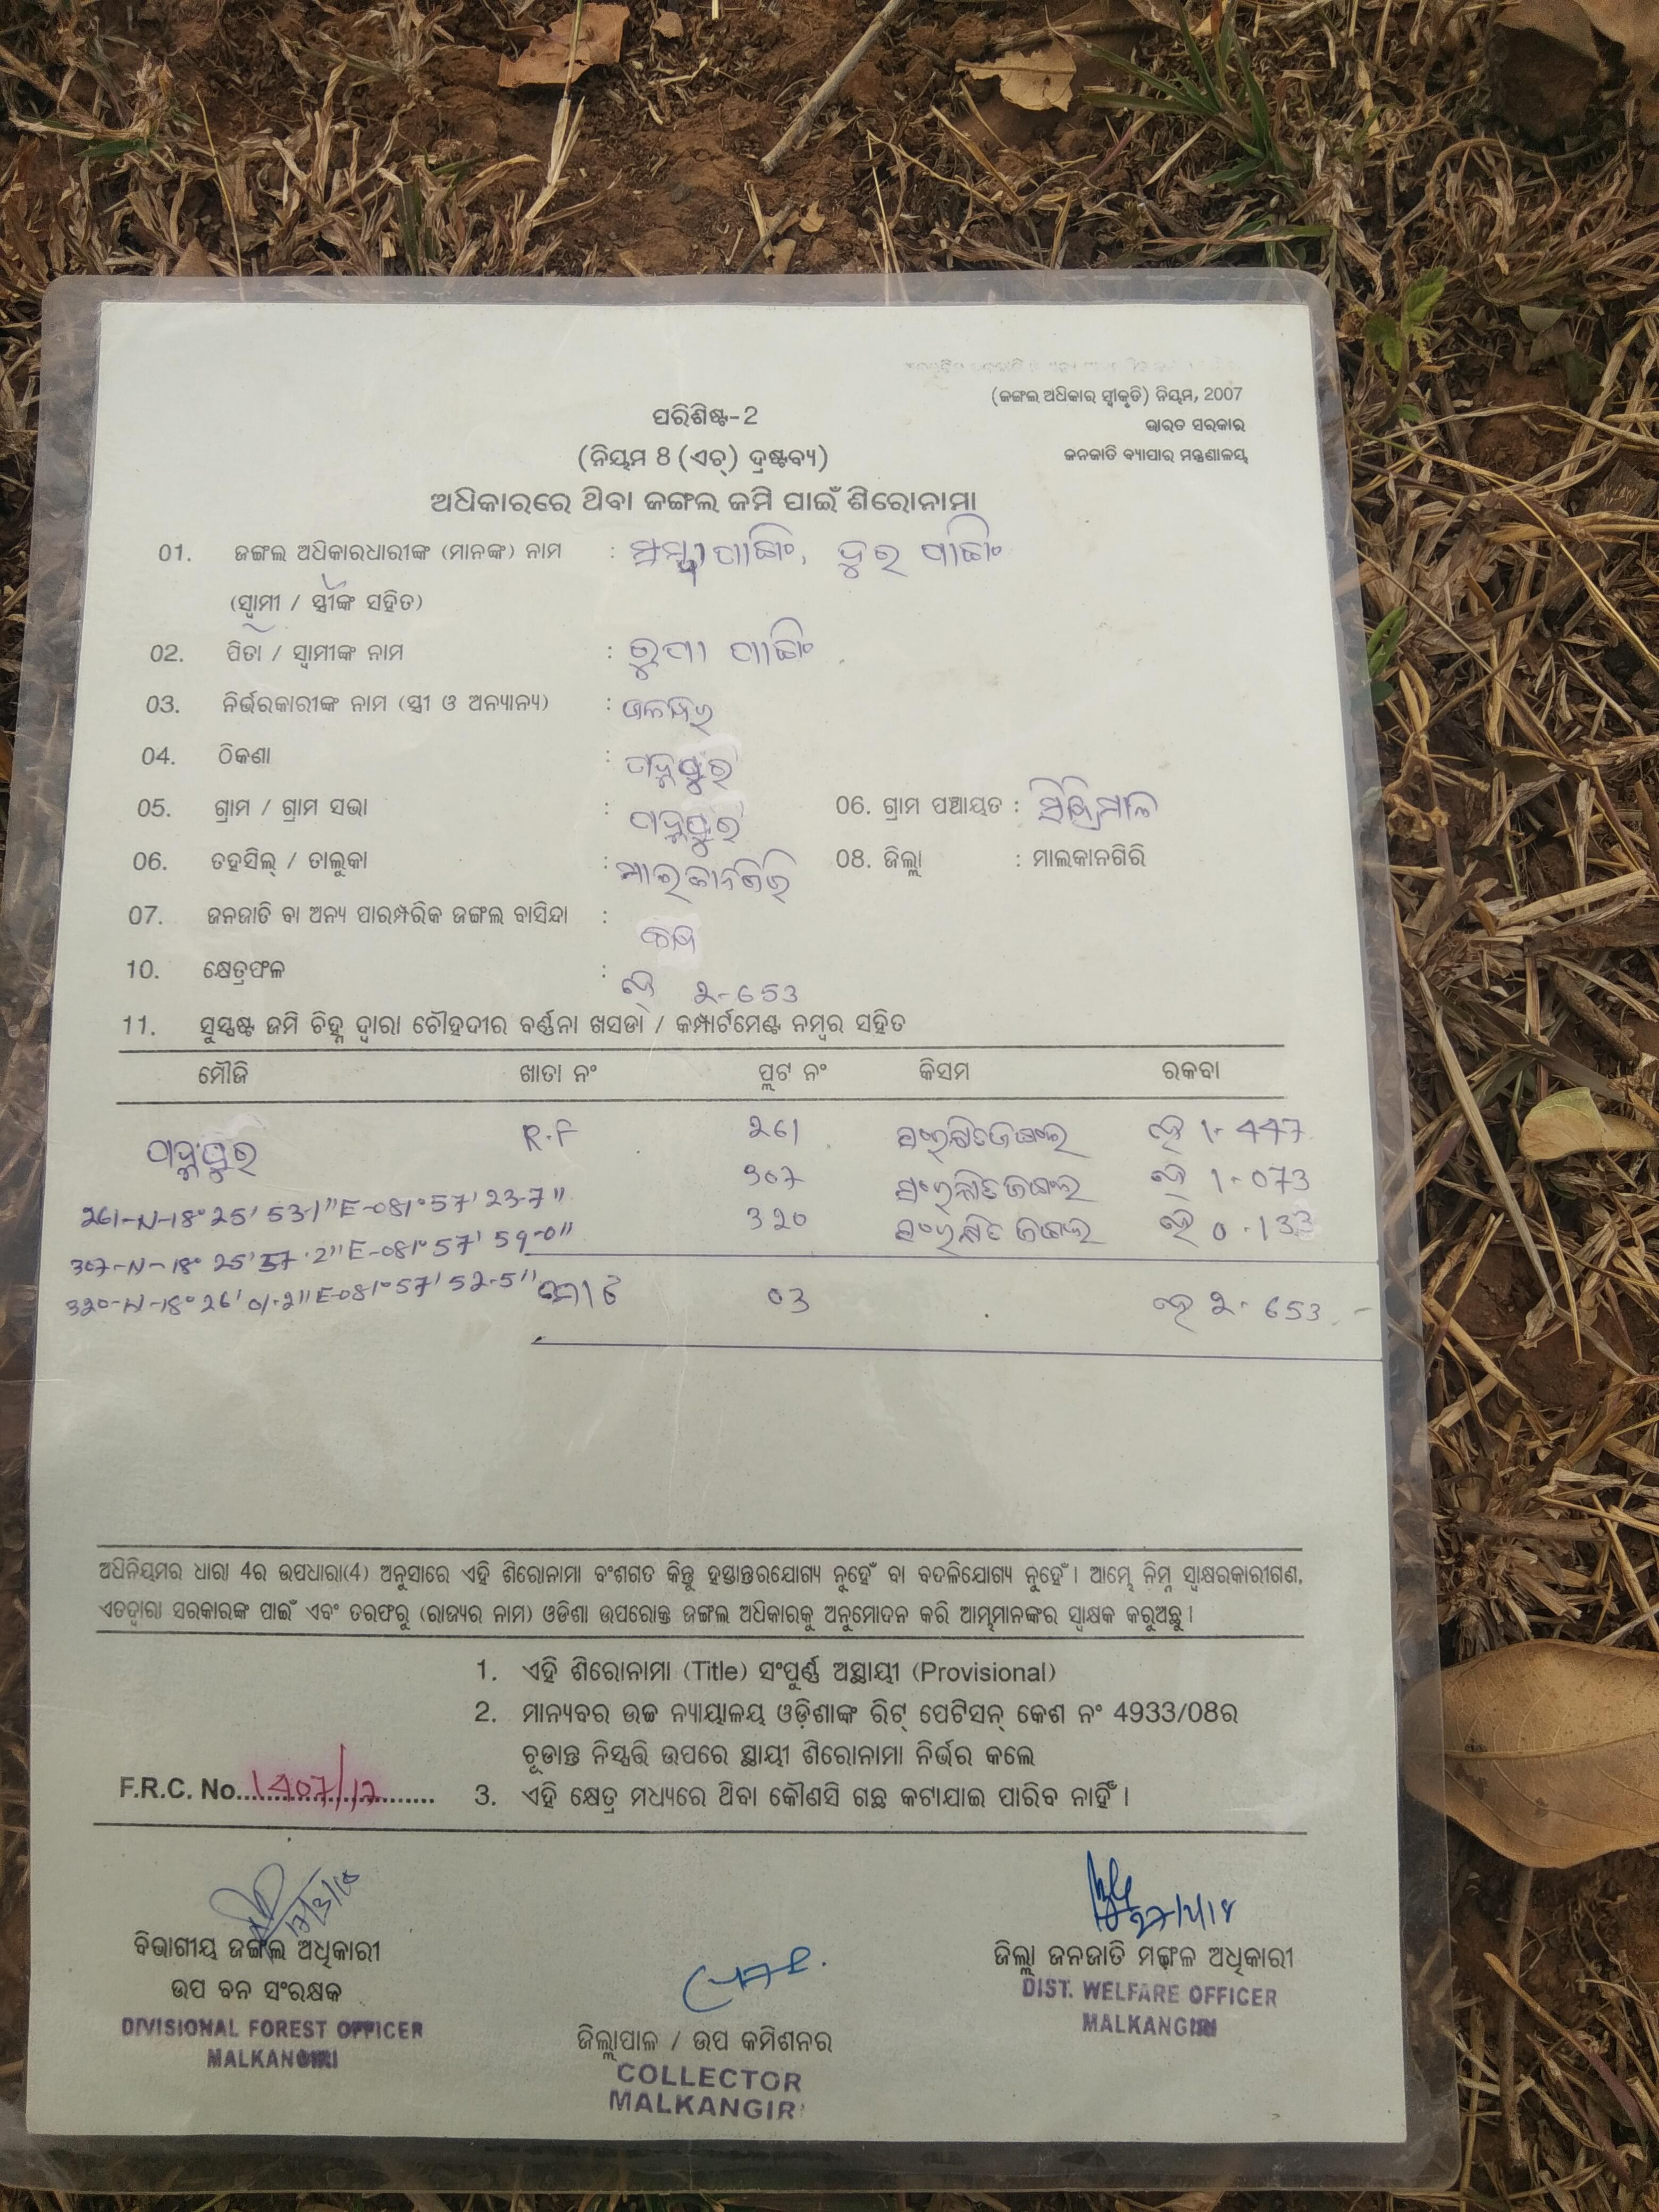 (ଜଙ୍ଗଲ ଅଧିକାର ସ୍ୱୀକୃତି) ନିୟମ, 2007
ଭାରତ ସରକାର
ଜନଜାତି ବ୍ୟାପାର ମନ୍ତ୍ରଣାଳୟ
ପରିଶିଷ୍ଟ-2
(ନିୟମ 8 (ଏଚ୍) ଦ୍ରଷ୍ଟବ୍ୟ)
ଅଧିକାରରେ ଥିବା ଜଙ୍ଗଲ ଜମି ପାଇଁ ଶିରୋନାମା
01. ଜଙ୍ଗଲ ଅଧିକାରଧାରୀଙ୍କ (ମାନଙ୍କ) ନାମ :
(ସ୍ୱାମୀ / ସ୍ତ୍ରୀଙ୍କ ସହିତ)
02. ପିତା / ସ୍ୱାମୀଙ୍କ ନାମ :
03. ନିର୍ଭରକାରୀଙ୍କ ନାମ (ସ୍ତ୍ରୀ ଓ ଅନ୍ୟାନ୍ୟ) :
04. ଠିକଣା : ପଦ୍ମପୁର
05. ଗ୍ରାମ / ଗ୍ରାମ ସଭା : ପଦ୍ମପୁର 06. ଗ୍ରାମ ପଞ୍ଚାୟତ :
06. ତହସିଲ୍ / ତାଲୁକା : ମାଲକାନଗିରି 08. ଜିଲ୍ଲା : ମାଲକାନଗିରି
07. ଜନଜାତି ବା ଅନ୍ୟ ପାରମ୍ପରିକ ଜଙ୍ଗଲ ବାସିନ୍ଦା :
10. କ୍ଷେତ୍ରଫଳ : ଏ 2-653
11. ସୁସ୍ପଷ୍ଟ ଜମି ଚିହ୍ନ ଦ୍ୱାରା ଚୌହଦୀର ବର୍ଣ୍ଣନା ଖସଡା / କମ୍ପାର୍ଟମେଣ୍ଟ ନମ୍ବର ସହିତ
ମୌଜି ଖାତା ନଂ ପ୍ଲଟ ନଂ କିସମ ରକବା
ପଦ୍ମପୁର R.F 261 ସଂରକ୍ଷିତ ଜଙ୍ଗଲ ଏ 1-447
307 ସଂରକ୍ଷିତ ଜଙ୍ଗଲ ଏ 1-073
320 ସଂରକ୍ଷିତ ଜଙ୍ଗଲ ଏ 0-133
261-N-18° 25' 53-1" E-081° 57' 23-7"
307-N-18° 25' 57.2" E-081° 57' 59-0"
320-N-18° 26' 01-2" E-081° 57' 52-5"
ମୋଟ 03 ଏ 2-653
ଅଧିନିୟମର ଧାରା 4ର ଉପଧାରା(4) ଅନୁସାରେ ଏହି ଶିରୋନାମା ବଂଶଗତ କିନ୍ତୁ ହସ୍ତାନ୍ତରଯୋଗ୍ୟ ନୁହେଁ ବା ବଦଳିଯୋଗ୍ୟ ନୁହେଁ । ଆମ୍ଭେ ନିମ୍ନ ସ୍ୱାକ୍ଷରକାରୀଗଣ,
ଏତଦ୍ୱାରା ସରକାରଙ୍କ ପାଇଁ ଏବଂ ତରଫରୁ (ରାଜ୍ୟର ନାମ) ଓଡିଶା ଉପରୋକ୍ତ ଜଙ୍ଗଲ ଅଧିକାରକୁ ଅନୁମୋଦନ କରି ଆମ୍ଭମାନଙ୍କର ସ୍ୱାକ୍ଷକ କରୁଅଛୁ ।
1. ଏହି ଶିରୋନାମା (Title) ସଂପୂର୍ଣ୍ଣ ଅସ୍ଥାୟୀ (Provisional)
2. ମାନ୍ୟବର ଉଚ୍ଚ ନ୍ୟାୟାଳୟ ଓଡ଼ିଶାଙ୍କ ରିଟ୍ ପେଟିସନ୍ କେଶ ନଂ 4933/08ର
ଚୂଡାନ୍ତ ନିସ୍ପତ୍ତି ଉପରେ ସ୍ଥାୟୀ ଶିରୋନାମା ନିର୍ଭର କଲେ
3. ଏହି କ୍ଷେତ୍ର ମଧ୍ୟରେ ଥିବା କୌଣସି ଗଛ କଟାଯାଇ ପାରିବ ନାହିଁ ।
F.R.C. No. 1407/17
ବିଭାଗୀୟ ଜଙ୍ଗଲ ଅଧିକାରୀ
ଉପ ବନ ସଂରକ୍ଷକ
DIVISIONAL FOREST OFFICER
MALKANGIRI
ଜିଲ୍ଲାପାଳ / ଉପ କମିଶନର
COLLECTOR
MALKANGIRI
ଜିଲ୍ଲା ଜନଜାତି ମଙ୍ଗଳ ଅଧିକାରୀ
DIST. WELFARE OFFICER
MALKANGIRI